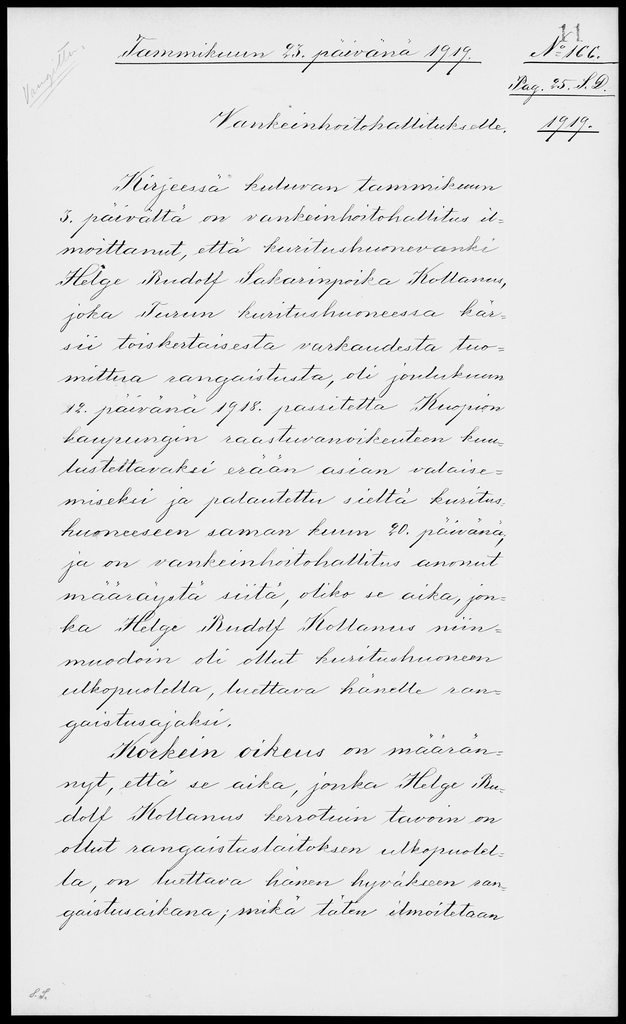 11
Tammikuun 23. päivänä 1919.
No 166.
Pag. 25. S. D.
1919.
Vankeinhoitohallitukselle.
Kirjeessä kuluvan tammikuun
3. päivältä on vankeinhoitohallitus il=
moittanut, että kuritushuonevanki
Helge Rudolf Sakarinpoika Kollanus,
joka Turun kuritushuoneessa kär=
sii toiskertaisesta varkaudesta tuo=
mittua rangaistusta, oli joulukuun
12. päivänä 1918. passitettu Kuopion
kaupungin raastuvanoikeuteen kuu=
lusteltavaksi erään asian valaise=
miseksi ja palautettu sieltä kuritus=
huoneeseen saman kuun 20. päivänä,
ja on vankeinhoitohallitus anonut
määräystä siitä, oliko se aika, jon=
ka Helge Rudolf Kollanus niin=
muodoin oli ollut kuritushuoneen
ulkopuolella, luettava hänelle ran=
gaistusajaksi.
Korkein oikeus on määrän=
nyt, että se aika, jonka Helge Ru=
dolf Kollanus kerrotuin tavoin on
ollut rangaistuslaitoksen ulkopuolel=
la, on luettava hänen hyväkseen ran=
gaistusaikana; mikä täten ilmoitetaan
S.S.